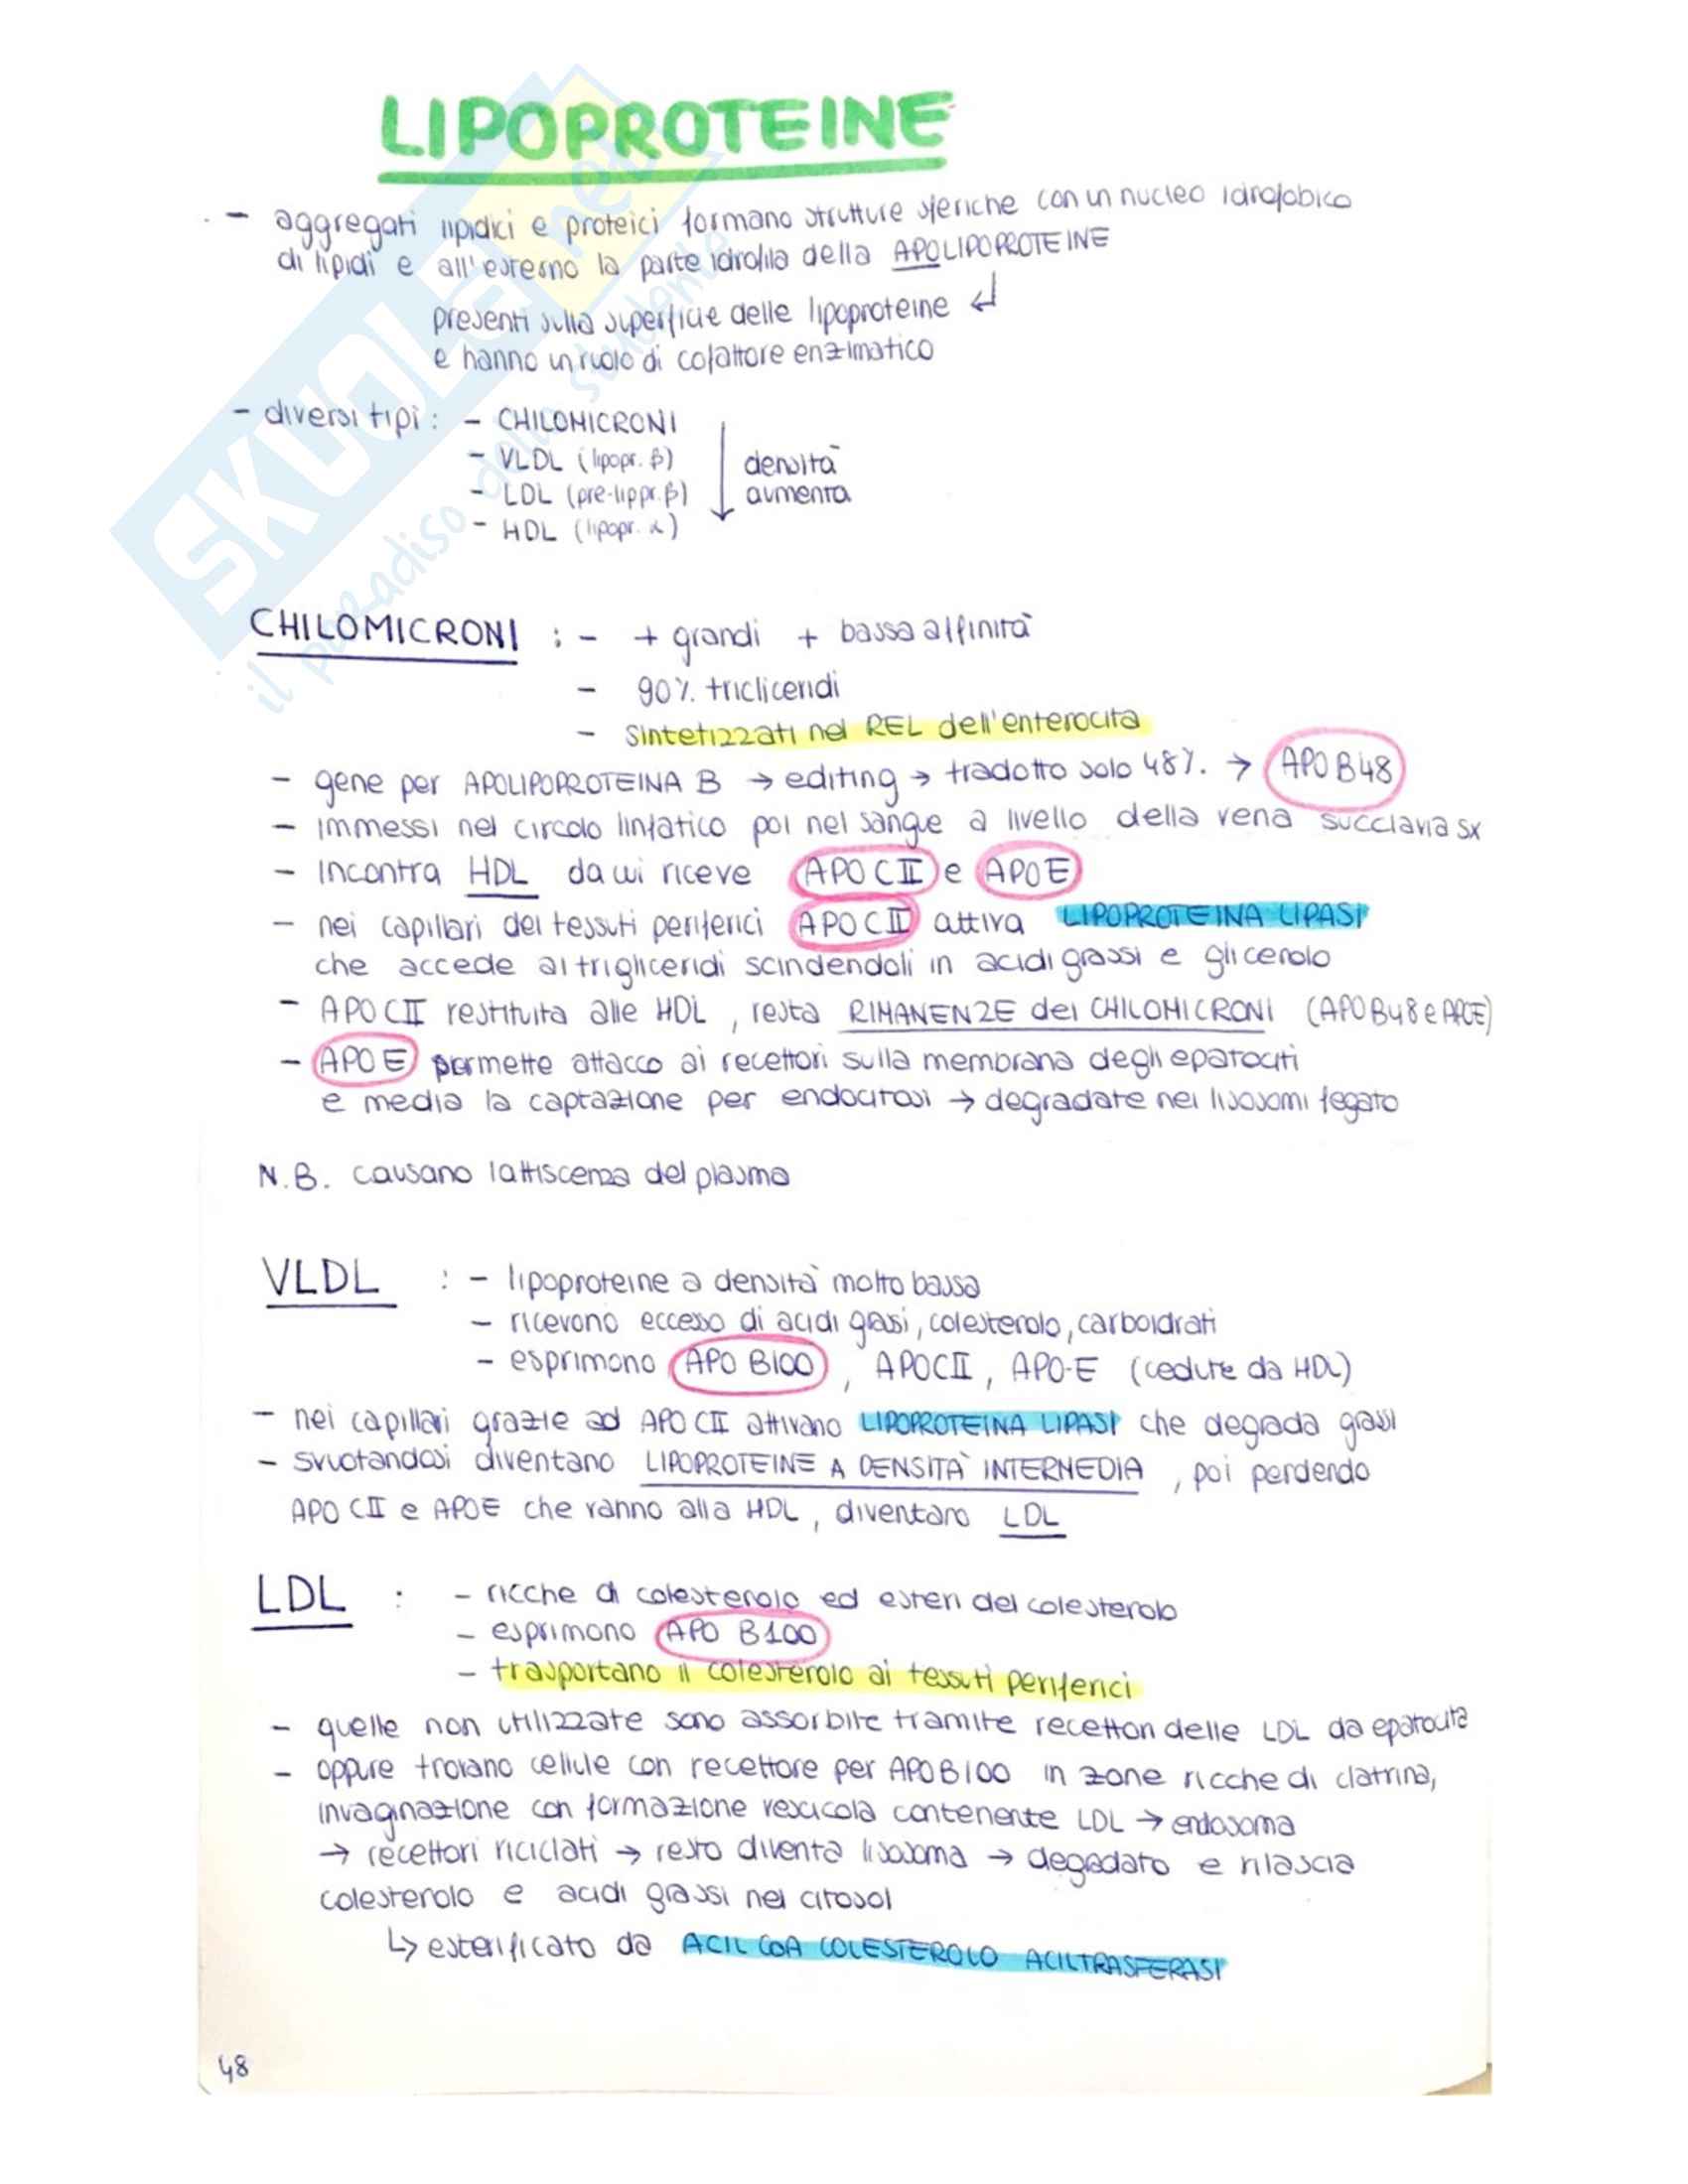 LIPOPROTEINE
- aggregati lipidici e proteici formano strutture sferiche con un nucleo idrofobico
di lipidi e all'esterno la parte idrofila della APOLIPOPROTEINE
presenti sulla superficie delle lipoproteine ↲
e hanno un ruolo di cofattore enzimatico
- diversi tipi: - CHILOMICRONI
- VLDL (lipopr. β)
- LDL (pre-lippr. β)
- HDL (lipopr. α)
↓ densità
aumenta
CHILOMICRONI : - + grandi + bassa affinità
- 90% tricliceridi
- sintetizzati nel REL dell'enterocita
- gene per APOLIPOPROTEINA B → editing → tradotto solo 48% → APO B48
- immessi nel circolo linfatico poi nel sangue a livello della vena succlavia sx
- incontra HDL da cui riceve APO CII e APO E
- nei capillari dei tessuti periferici APO CII attiva LIPOPROTEINA LIPASI
che accede ai trigliceridi scindendoli in acidi grassi e glicerolo
- APO CII restituita alle HDL, resta RIMANENZE dei CHILOMICRONI (APO B48 e APOE)
- APO E permette attacco ai recettori sulla membrana degli epatociti
e media la captazione per endocitosi → degradate nei lisosomi fegato
N.B. causano lattiscenza del plasma
VLDL : - lipoproteine a densità molto bassa
- ricevono eccesso di acidi grasi, colesterolo, carboidrati
- esprimono APO B100, APOCII, APO-E (cedute da HDL)
- nei capillari grazie ad APO CII attivano LIPOPROTEINA LIPASI che degrada grassi
- svuotandosi diventano LIPOPROTEINE A DENSITÀ INTERMEDIA, poi perdendo
APO CII e APOE che vanno alla HDL, diventano LDL
LDL : - ricche di colesterolo ed esteri del colesterolo
- esprimono APO B100
- trasportano il colesterolo ai tessuti periferici
- quelle non utilizzate sono assorbite tramite recettori delle LDL da epatocita
- oppure trovano cellule con recettore per APO B100 in zone ricche di clatrina,
invaginazione con formazione vescicola contenente LDL → endosoma
→ recettori riciclati → resto diventa lisosoma → degradato e rilascia
colesterolo e acidi grassi nel citosol
↳ esterificato da ACIL COA COLESTEROLO ACILTRASFERASI
48
SKUOLA.net
il paradiso dello studente